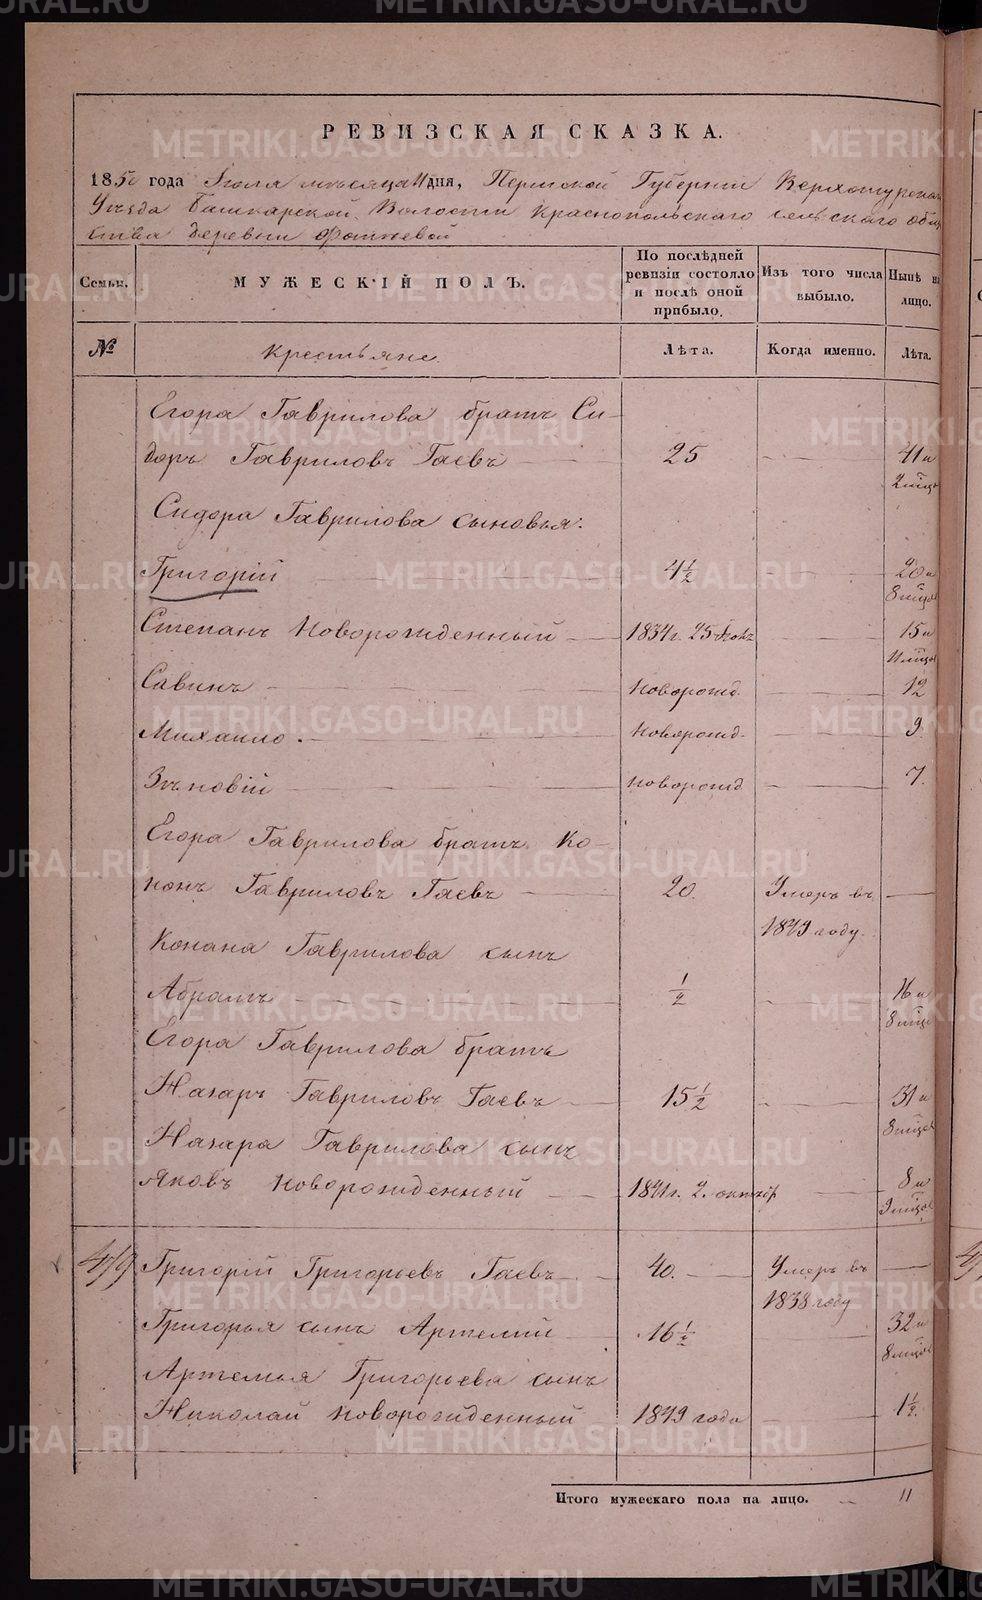 РЕВИЗСКАЯ СКАЗКА.
1850 года Июля месяца 11 дня, Пермской Губернии Верхотурскаго
Уѣзда Башкарской Волости Краснопольскаго сельскаго обще
ства деревни Фотѣевой
Семьи. МУЖЕСКІЙ ПОЛЪ. По послѣдней ревизіи состояло и послѣ оной прибыло. Изъ того числа выбыло. Нынѣ на лицо.
№ Крестьяне Лѣта. Когда именно. Лѣта.
Егора Гаврилова братъ Си-
доръ Гавриловъ Гаевъ 25 41 и
2 мѣця
Сидора Гаврилова сыновья:
Григорій 4½ 20 и
8 мѣцов
Степанъ новорожденный 1834 г. 25 15 и
11 мѣцов
Савинъ новорожд. 12
Михаило новорожд. 9.
Зѣновій новорожд 7.
Егора Гаврилова братъ Ко-
нонъ Гавриловъ Гаевъ 20. Умеръ въ
1849 году.
Конана Гаврилова сынъ
Абрамъ ½ 16 и
8 мѣцов
Егора Гаврилова братъ
Назаръ Гавриловъ Гаевъ 15½ 31 и
8 мѣцов
Назара Гаврилова сынъ
Яковъ новорожденный 1841 г. 2. октябр 8 и
9 мѣцов
4/9 Григорій Григорьевъ Гаевъ 40. Умеръ въ
1838 году
Григорья сынъ Артемий 16½ 32 и
8 мѣцов
Артемья Григорьева сынъ
Николай новорожденный 1849 года 1½.
Итого мужескаго пола на лицо. 11
METRIKI.GASO-URAL.RU